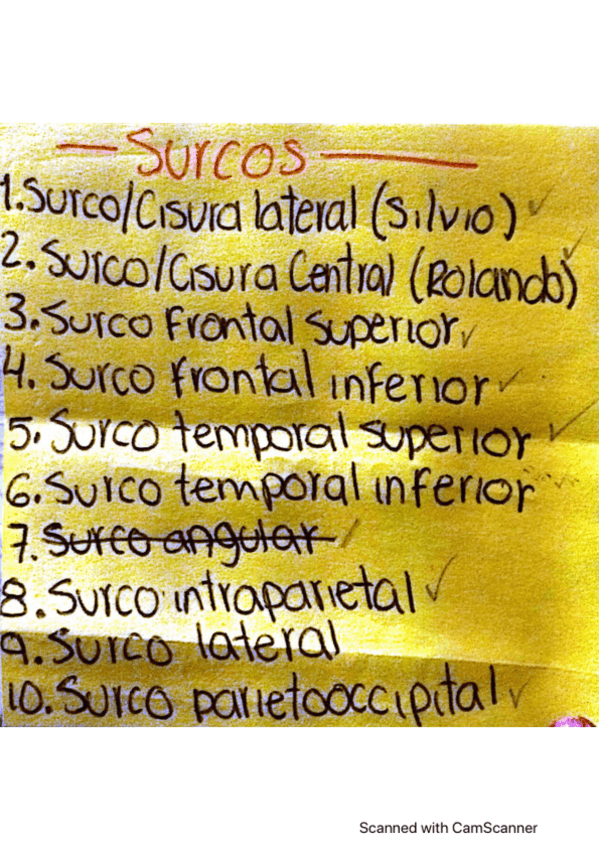 Surcos
1. Surco/Cisura lateral (Silvio)
2. Surco/Cisura Central (Rolando)
3. Surco Frontal Superior
4. Surco frontal inferior
5. Surco temporal superior
6. Surco temporal inferior
7. Surco angular
8. Surco intraparietal
9. Surco lateral
10. Surco parietooccipital
Scanned with CamScanner